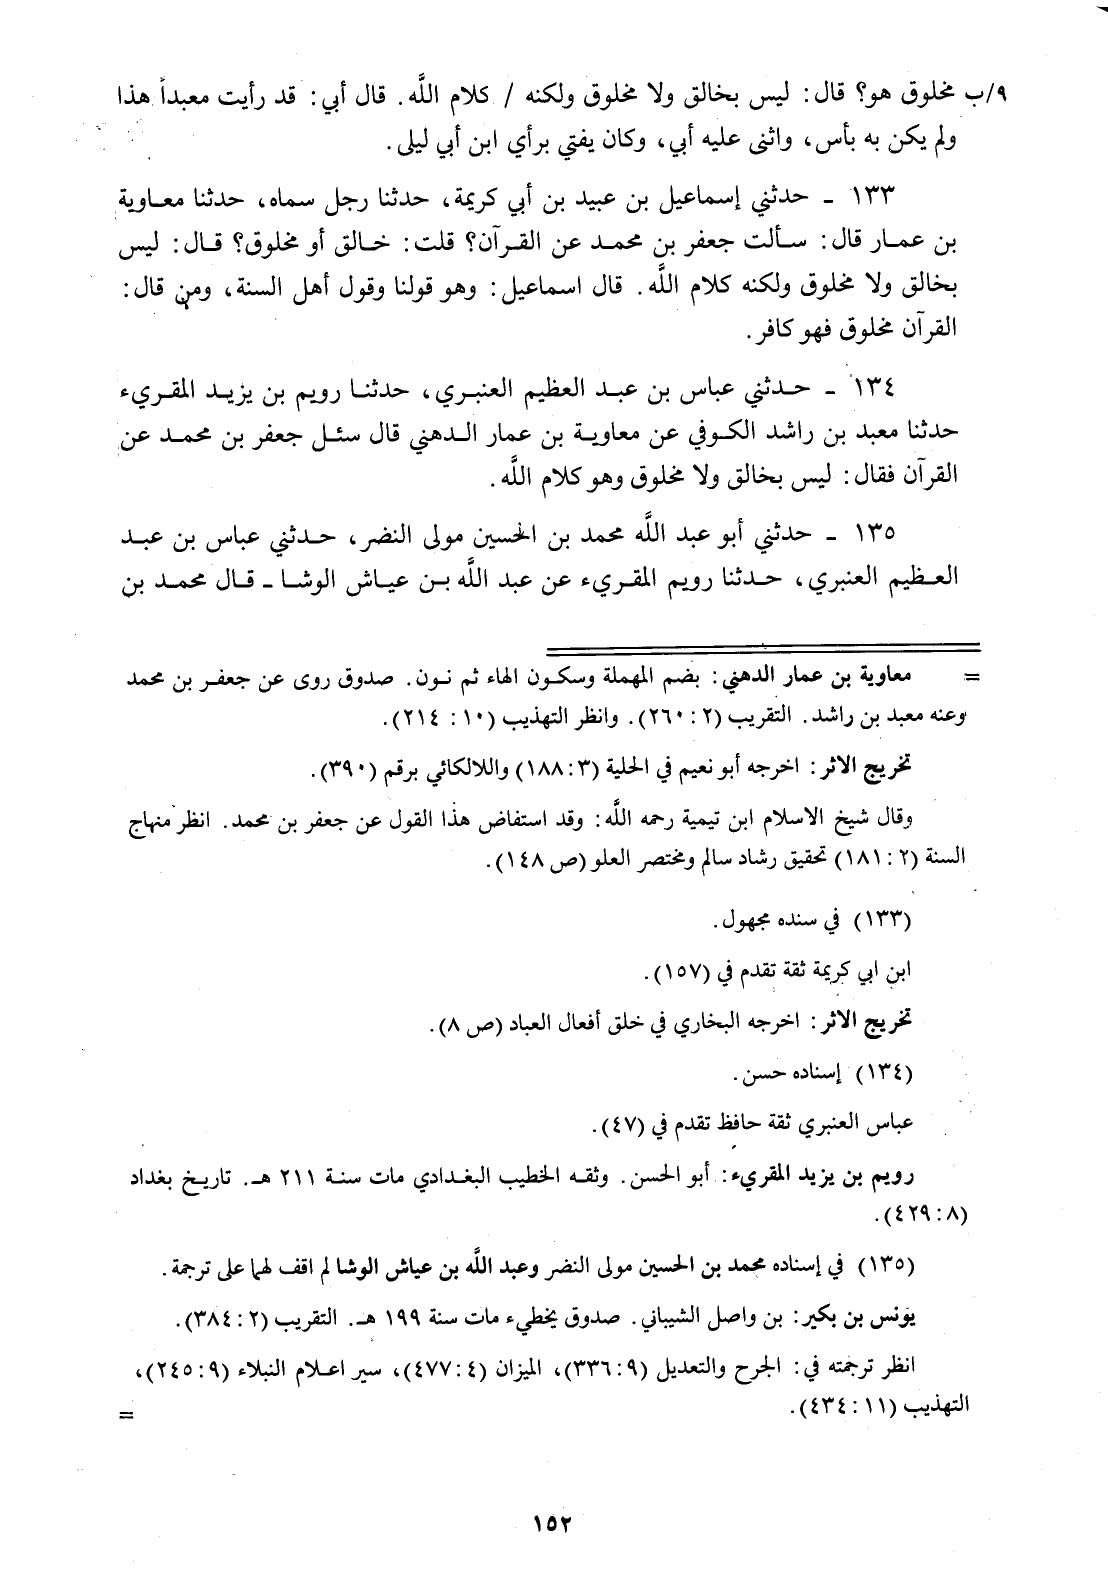 ٩/ب مخلوق هو؟ قال: ليس بخالق ولا مخلوق ولكنه / كلام اللَّه. قال أبي: قد رأيت معبداً هذا
ولم يكن به بأس، واثنى عليه أبي، وكان يفتي برأي ابن أبي ليلى.
١٣٣ ـ حدثني إسماعيل بن عبيد بن أبي كريمة، حدثنا رجل سماه، حدثنا معاوية
بن عمار قال: سألت جعفر بن محمد عن القرآن؟ قلت: خالق أو مخلوق؟ قال: ليس
بخالق ولا مخلوق ولكنه كلام اللَّه. قال اسماعيل: وهو قولنا وقول أهل السنة، ومن قال:
القرآن مخلوق فهو كافر.
١٣٤ ـ حدثني عباس بن عبد العظيم العنبري، حدثنا رويم بن يزيد المقريء
حدثنا معبد بن راشد الكوفي عن معاوية بن عمار الدهني قال سئل جعفر بن محمد عن
القرآن فقال: ليس بخالق ولا مخلوق وهو كلام اللَّه.
١٣٥ ـ حدثني أبو عبد اللَّه محمد بن الحسين مولى النضر، حدثني عباس بن عبد
العظيم العنبري، حدثنا رويم المقريء عن عبد اللَّه بن عياش الوشا ـ قال محمد بن
= معاوية بن عمار الدهني: بضم المهملة وسكون الهاء ثم نون. صدوق روى عن جعفر بن محمد
وعنه معبد بن راشد. التقريب (٢: ٢٦٠). وانظر التهذيب (١٠: ٢١٤).
تخريج الاثر: اخرجه أبو نعيم في الحلية (٣: ١٨٨) واللالكائي برقم (٣٩٠).
وقال شيخ الاسلام ابن تيمية رحمه اللَّه: وقد استفاض هذا القول عن جعفر بن محمد. انظر منهاج
السنة (٢: ١٨١) تحقيق رشاد سالم ومختصر العلو (ص ١٤٨).
(١٣٣) في سنده مجهول.
ابن ابي كريمة ثقة تقدم في (١٥٧).
تخريج الاثر: اخرجه البخاري في خلق أفعال العباد (ص ٨).
(١٣٤) إسناده حسن.
عباس العنبري ثقة حافظ تقدم في (٤٧).
رويم بن يزيد المقريء: أبو الحسن. وثقه الخطيب البغدادي مات سنة ٢١١ هـ. تاريخ بغداد
(٨: ٤٢٩).
(١٣٥) في إسناده محمد بن الحسين مولى النضر وعبد اللَّه بن عياش الوشا لم اقف لهما على ترجمة.
يونس بن بكير: بن واصل الشيباني. صدوق يخطيء مات سنة ١٩٩ هـ. التقريب (٢: ٣٨٤).
انظر ترجمته في: الجرح والتعديل (٩: ٣٣٦)، الميزان (٤: ٤٧٧)، سير اعلام النبلاء (٩: ٢٤٥)،
التهذيب (١١: ٤٣٤). =
١٥٢